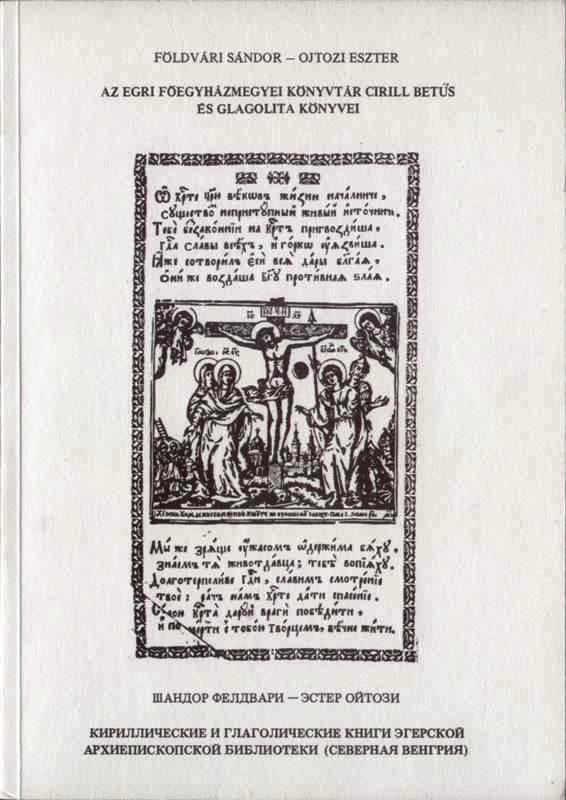 FÖLDVÁRI SÁNDOR – OJTOZI ESZTER
AZ EGRI FŐEGYHÁZMEGYEI KÖNYVTÁR CIRILL BETŰS
ÉS GLAGOLITA KÖNYVEI
Ѿ хр҃те цр҃ю вѣкѡвъ жи́зни нача́лниче,
существо̀ непристу́пный живы́й и҆сто́чниче.
Тебѐ беззако́ннїи на кр҃тъ пригвозди́ша,
гд҃а сла́вы всѣ́хъ, и҆ го́рко ᲂу҆ѧзви́ша.
Ꙗ҆́же сотвори́лъ є҆сѝ всѧ̑ да́ры бл҃га́ѧ,
ѻ҆ни́ же возда́ша бг҃ꙋ проти́внаѧ ѕла́ѧ.
І҆Н҃ЦІ
Мы́ же зрѧ́ще ᲂу҆́жасомъ ѡ҆держи́ма бѧ́хꙋ,
зна́емъ тѧ̀ живода́вца; тебѣ̀ вопїѧ́хꙋ.
Долготерпели́ве гд҃и, сла́вимъ смотре́нїе
твоѐ: ра́чъ на́мъ хр҃тѐ да́ти спасе́нїе.
кр҃та̀ да́рꙋй врагѝ побѣди́ти,
и҆ по сме́рти с̾ тобо́ю творце́мъ, вѣ́чне жи́ти.
ШАНДОР ФЕЛДВАРИ – ЭСТЕР ОЙТОЗИ
КИРИЛЛИЧЕСКИЕ И ГЛАГОЛИЧЕСКИЕ КНИГИ ЭГЕРСКОЙ
АРХИЕПИСКОПСКОЙ БИБЛИОТЕКИ (СЕВЕРНАЯ ВЕНГРИЯ)